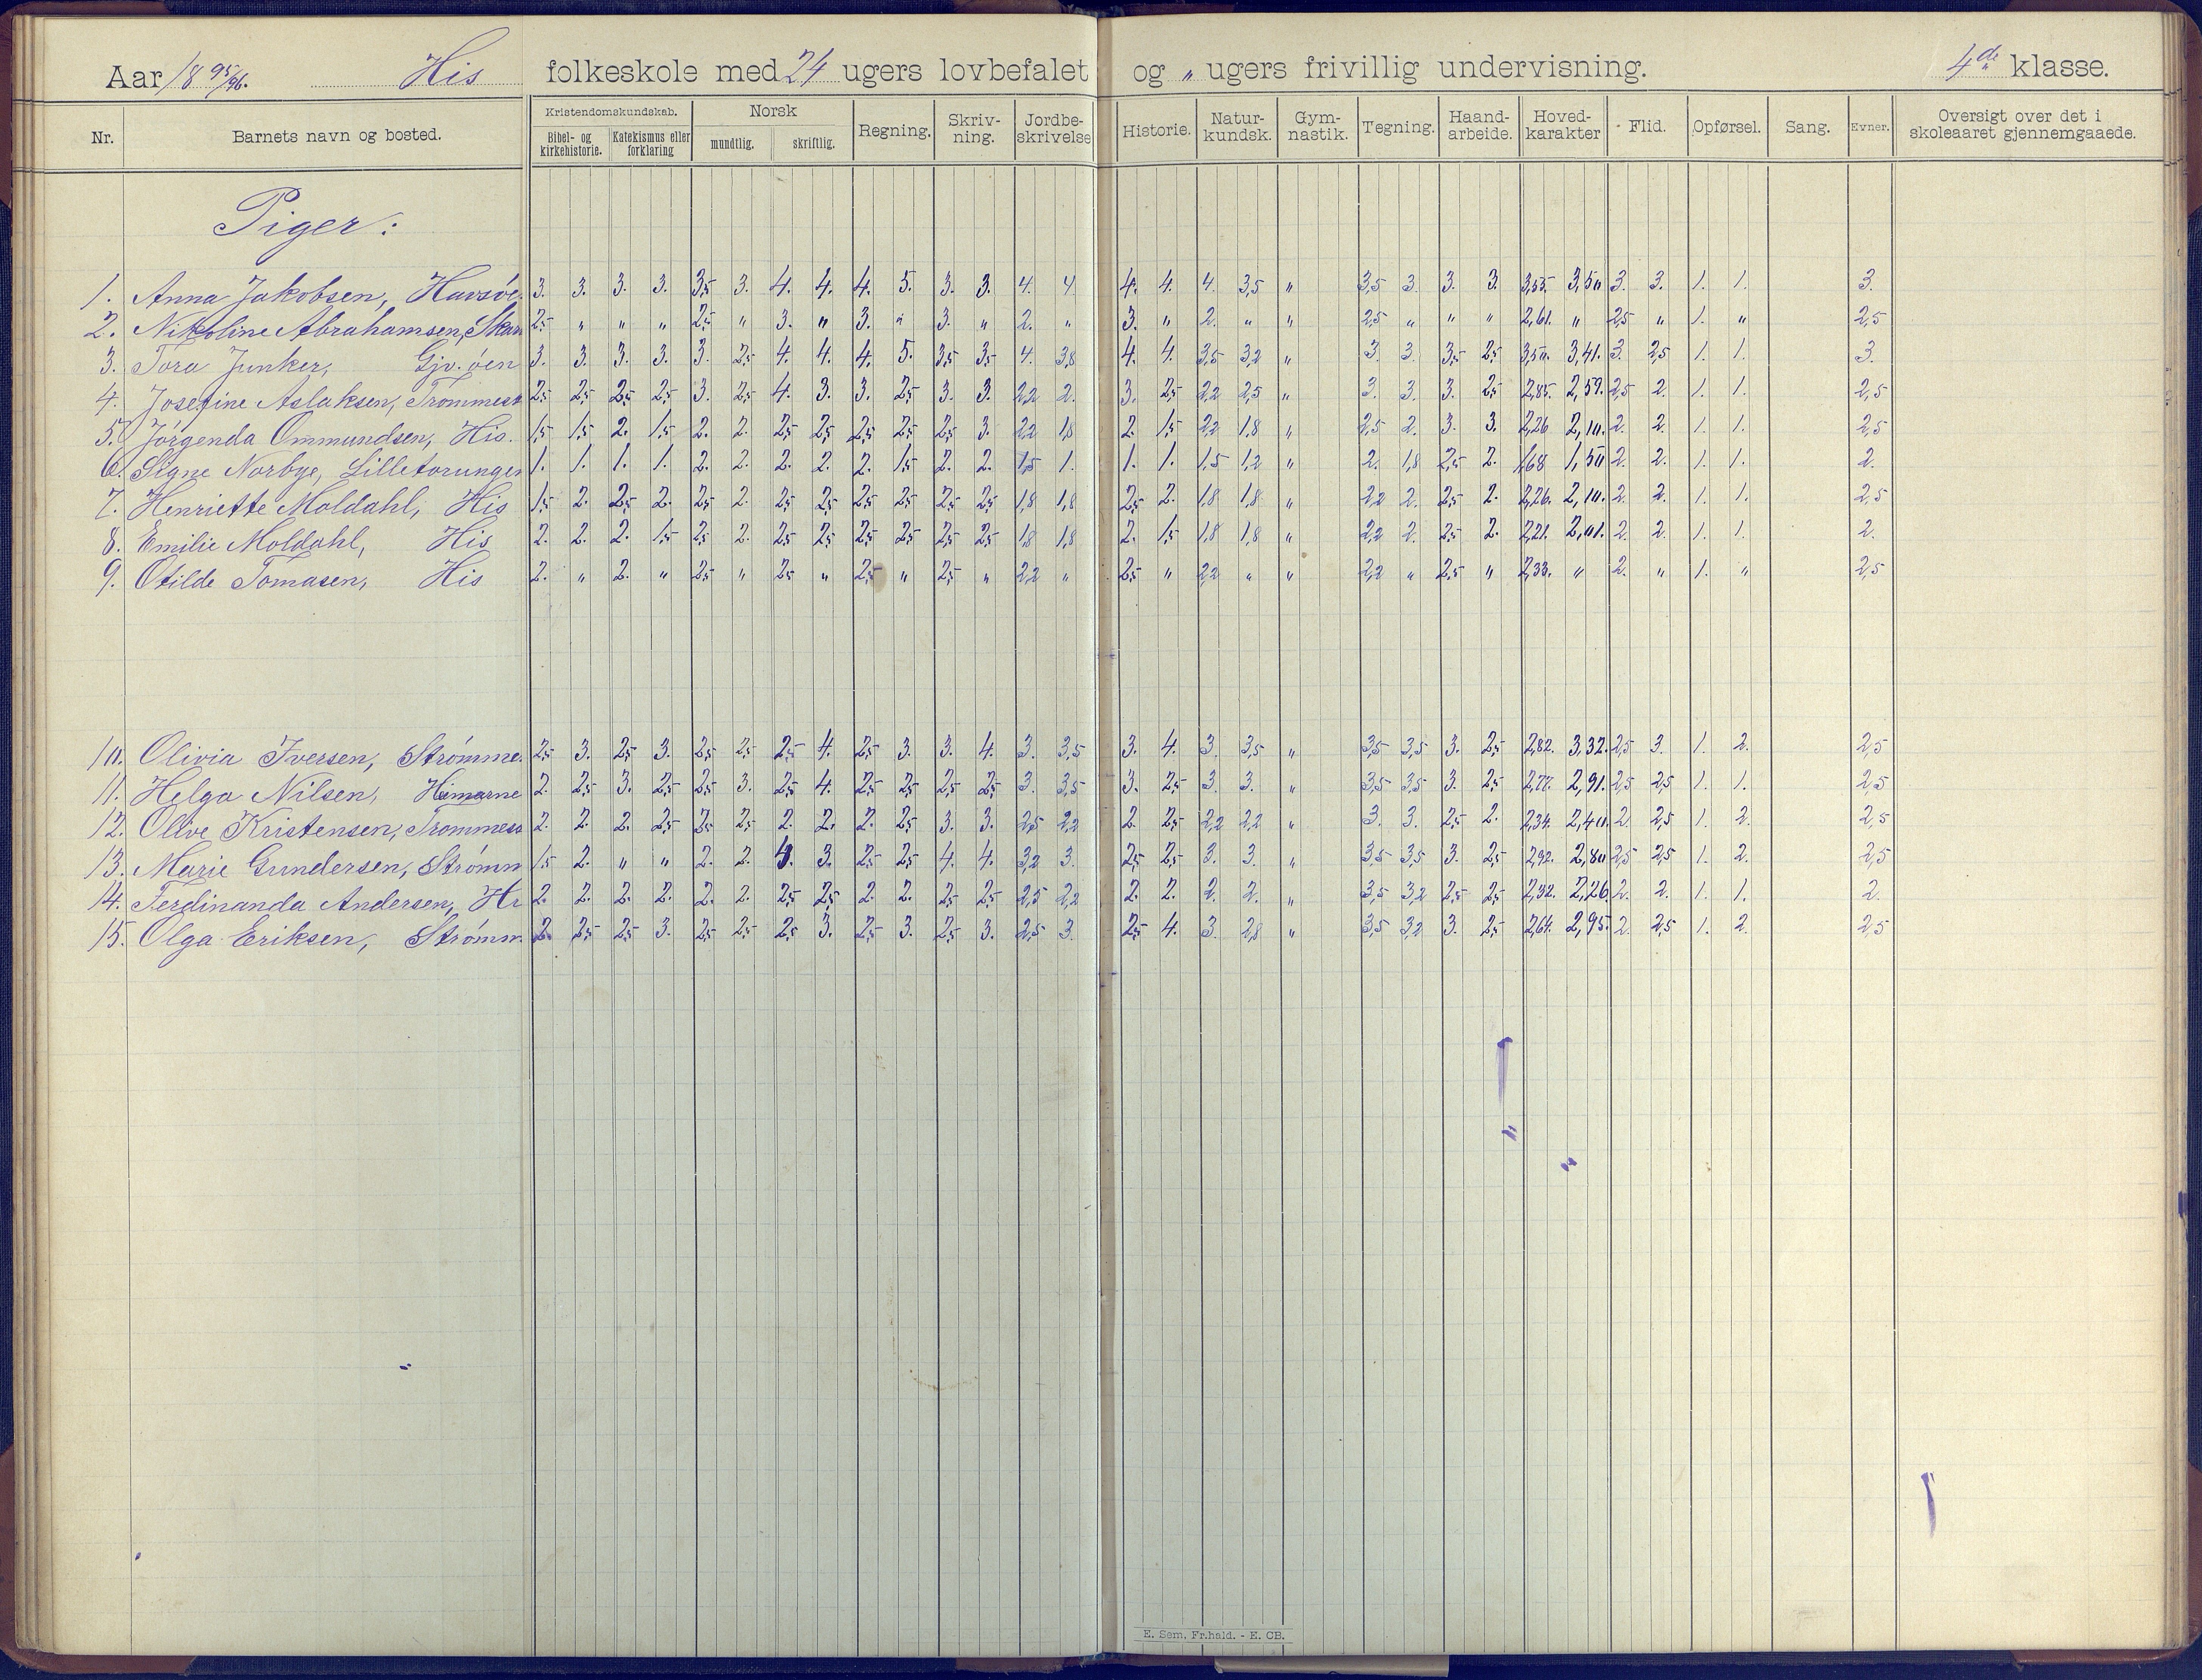 Aar 18 95/96. His folkeskole med 24 ugers lovbefalet og „ ugers frivillig undervisning. 4de klasse.
Nr. Barnets navn og bosted. Kristendomskundskab. Bibel- og kirkehistorie. Katekismus eller forklaring Norsk mundtlig. skriftlig. Regning. Skriv-ning. Jordbe-skrivelse Historie. Natur-kundsk. Gym-nastik. Tegning. Haand-arbeide. Hoved-karakter Flid. Opførsel. Sang. Evner. Oversigt over det i skoleaaret gjennemgaaede.
Piger:
1. Anna Jakobsen, Havsøe 3. 3. 3. 3. 3,5 3. 4. 4. 4. 5. 3. 3. 4. 4 4. 4. 4. 3,5 „ 3,5 3. 3. 3. 3,55 3,50 3. 3. 1. 1. 3.
2. Nikoline Abrahamsen, Skar 2,5 „ „ „ 2,5 „ 3. „ 3. „ 3. „ 2. „ 3. „ 2. „ „ 2,5 „ „ „ 2,61. „ 2,5 „ 1. „ 2,5
3. Tora Junker, Gjv. öen 3. 3. 3. 3. 3. 2,5 4. 4. 4. 5. 3,5 3,5 4. 3,8 4. 4. 3,5 3,2 „ 3. 3. 3,5 2,5 3,50. 3,41. 3. 2,5 1. 1. 3.
4. Josefine Aslaksen, Trommest 2,5 2,5 2,5 2,5 3. 2,5 4. 3. 3. 2,5 3. 3. 2,2 2. 3. 2,5 2,2 2,5 „ 3. 3. 3. 2,5 2,85. 2,59. 2,5 2. 1. 1. 2,5
5. Jörgenda Ommundsen, His. 1,5 1,5 2. 1,5 2. 2. 2,5 2,5 2,5 2,5 2,5 3. 2,2 1,8 2. 1,5 2,2 1,8 „ 2,5 2. 3. 3. 2,26 2,10. 2. 2. 1. 1. 2,5
6. Signe Norbye, Lilletorungen 1. 1. 1. 1. 2. 2. 2. 2. 2. 1,5 2. 2. 1,5 1. 1. 1. 1,5 1,2 „ 2. 1,8 2,5 2. 1,68 1,50 2. 2. 1. 1. 2.
7. Henriette Moldahl, His 1,5 2. 2,5 2. 2,5 2. 2,5 2,5 2,5 2,5 2,5 2,5 1,8 1,8 2,5 2. 1,8 1,8 „ 2,2 2. 2,5 2. 2,26. 2,10. 2. 2. 1. 1. 2,5
8. Emilie Moldahl, His 2. 2. 2. 1,5 2,5 2. 2,5 2,5 2,5 2,5 2,5 2,5 1,8 1,8 2. 1,5 1,8 1,8 „ 2,2 2. 2,5 2. 2,21. 2,01. 2. 2. 1. 1. 2.
9. Otilde Tomasen, His 2. „ 2. „ 2,5 „ 2,5 „ 2,5 „ 2,5 „ 2,2 „ 2,5 „ 2,2 „ „ 2,2 „ 2,5 „ 2,33. „ 2. „ 1. „ 2,5
10. Olivia Iversen, Strømme. 2,5 3. 2,5 3. 2,5 2,5 2,5 4. 2,5 3. 3. 4. 3. 3,5 3. 4. 3. 3,5 „ 3,5 3,5 3. 2,5 2,82. 3,32. 2,5 3. 1. 2. 2,5
11. Helga Nilsen, Himarne 2. 2,5 3. 2,5 2,5 3. 2,5 4. 2,5 2,5 2,5 2,5 3. 3,5 3. 2,5 3. 3. „ 3,5 3,5 3. 2,5 2,77. 2,91. 2,5 2,5 1. 1. 2,5
12. Olive Kristensen, Trommess 2. 2. 2. 2,5 2,5 2,5 2. 2. 2. 2,5 3. 3. 2,5 2,2 2. 2,5 2,2 2,2 „ 3. 3. 2,5 2. 2,34. 2,40. 2. 2,5 1. 2. 2,5
13. Marie Gundersen, Strømm 1,5 2. „ „ 2. 2. 4. 3. 2,5 2,5 4. 4. 3,2 3. 2,5 2,5 3. 3. „ 3,5 3,5 3. 2,5 2,92. 2,80 2,5 2,5 1. 2. 2,5
14. Ferdinanda Andersen, Hi 2. 2. 2. 2. 2. 2. 2,5 2,5 2. 2. 2,5 2,5 2,5 2,2 2. 2. 2. 2. „ 3,5 3,2 2,5 2,5 2,32. 2,26. 2. 2. 1. 1. 2.
15. Olga Eriksen, Strømm. 2. 2,5 2,5 3. 2,5 2,5 2,5 3. 2,5 3. 2,5 3. 2,5 3. 2,5 4. 3. 2,8 „ 3,5 3,2 3. 2,5 2,64. 2,95. 2. 2,5 1. 2. 2,5
E. Sem, Fr.hald. - E. CB.